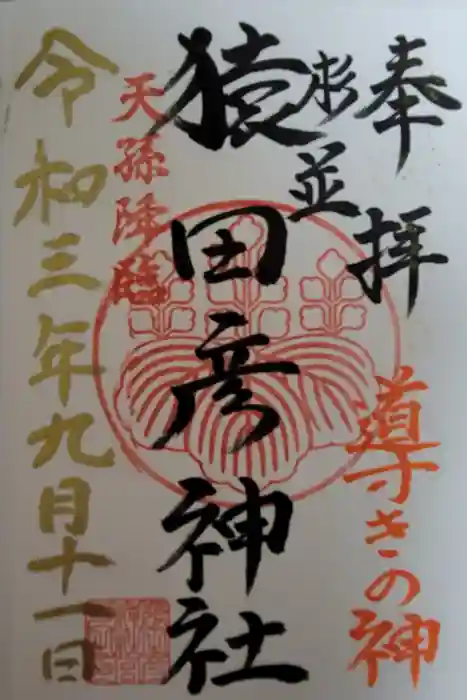 奉拝
導きの神
杉並
猿田彦神社
天孫降臨
令和三年九月十一日